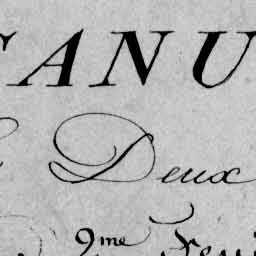 ANU
Deux
9me